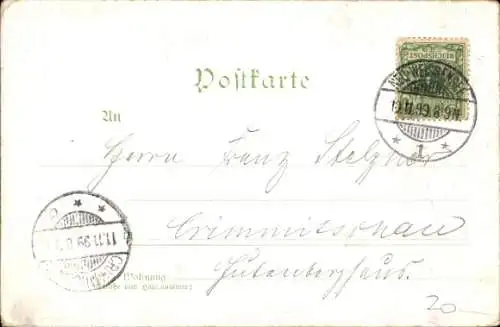 REICHSPOST
Postkarte
10.11.99.8-9N.
1
An
Herrn Franz Stelzner
Crimmitschau
Gutenberghaus.
11.11.99.8
Wohnung
(Straße und Hausnummer)
20-